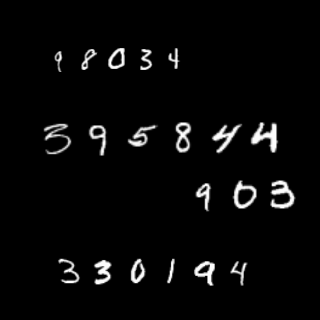 98034
395844
903
330194